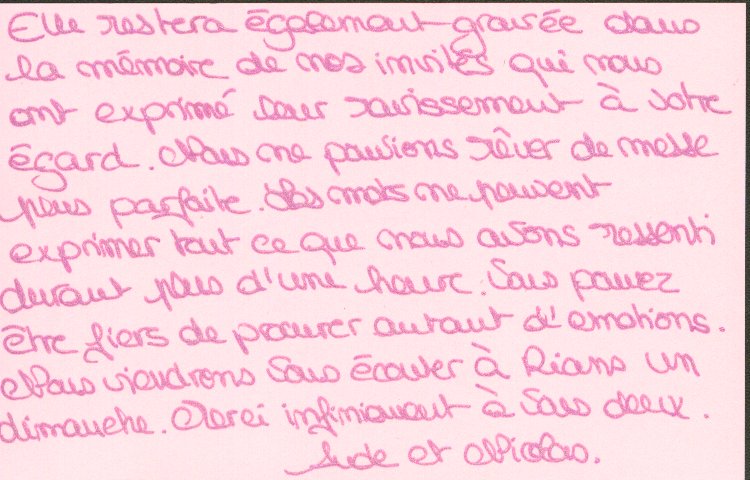 Elle restera également gravée dans
la mémoire de nos invités qui nous
ont exprimé leur ravissement à votre
égard. Nous ne pouvions rêver de messe
plus parfaite. Les mots ne peuvent
exprimer tout ce que nous avons ressenti
durant plus d'une heure. Vous pouvez
être fiers de procurer autant d'émotions.
Nous viendrons vous écouter à Rians un
dimanche. Merci infiniment à vous deux.
Jude et Nicolas.